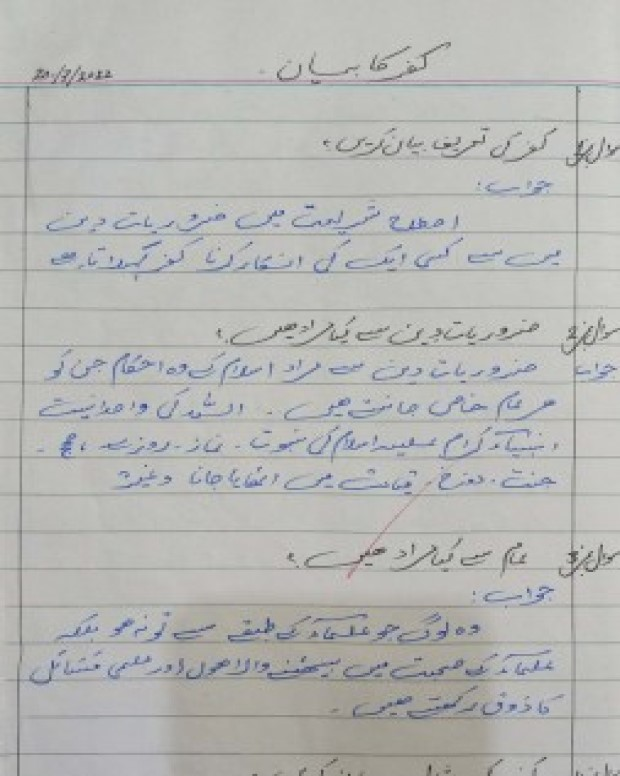 کفر کا بیان
20/7/2022
سوال نمبر1 کفر کی تعریف بیان کریں؟
جواب:
اصطلاح شریعت میں ضروریات دین
میں سے کسی ایک کی انکار کرنا کفر کہلاتا ہے
سوال نمبر2 ضروریات دین سے کیا مراد ھیں؟
جواب ضروریات دین سے مراد اسلام کے وہ احکام جن کو
ھر عام خاص جانتے ھیں۔ اللہ کی واحدانیت
انبیاء کرام علیہ اسلام کی نبوت۔ نماز۔ روزے،
جنت، دوزخ، قیامت میں اٹھایا جانا وغیرہ
سوال نمبر3 عام سے کیا مراد ھیں؟
جواب:
وہ لوگ جو علماء کے طبقے سے تو نہ ھو بلکہ
علماء کے صحبت میں بیٹھنے والا ھوں اور علمی مسائل
کا ذوق رکھتے ھیں۔